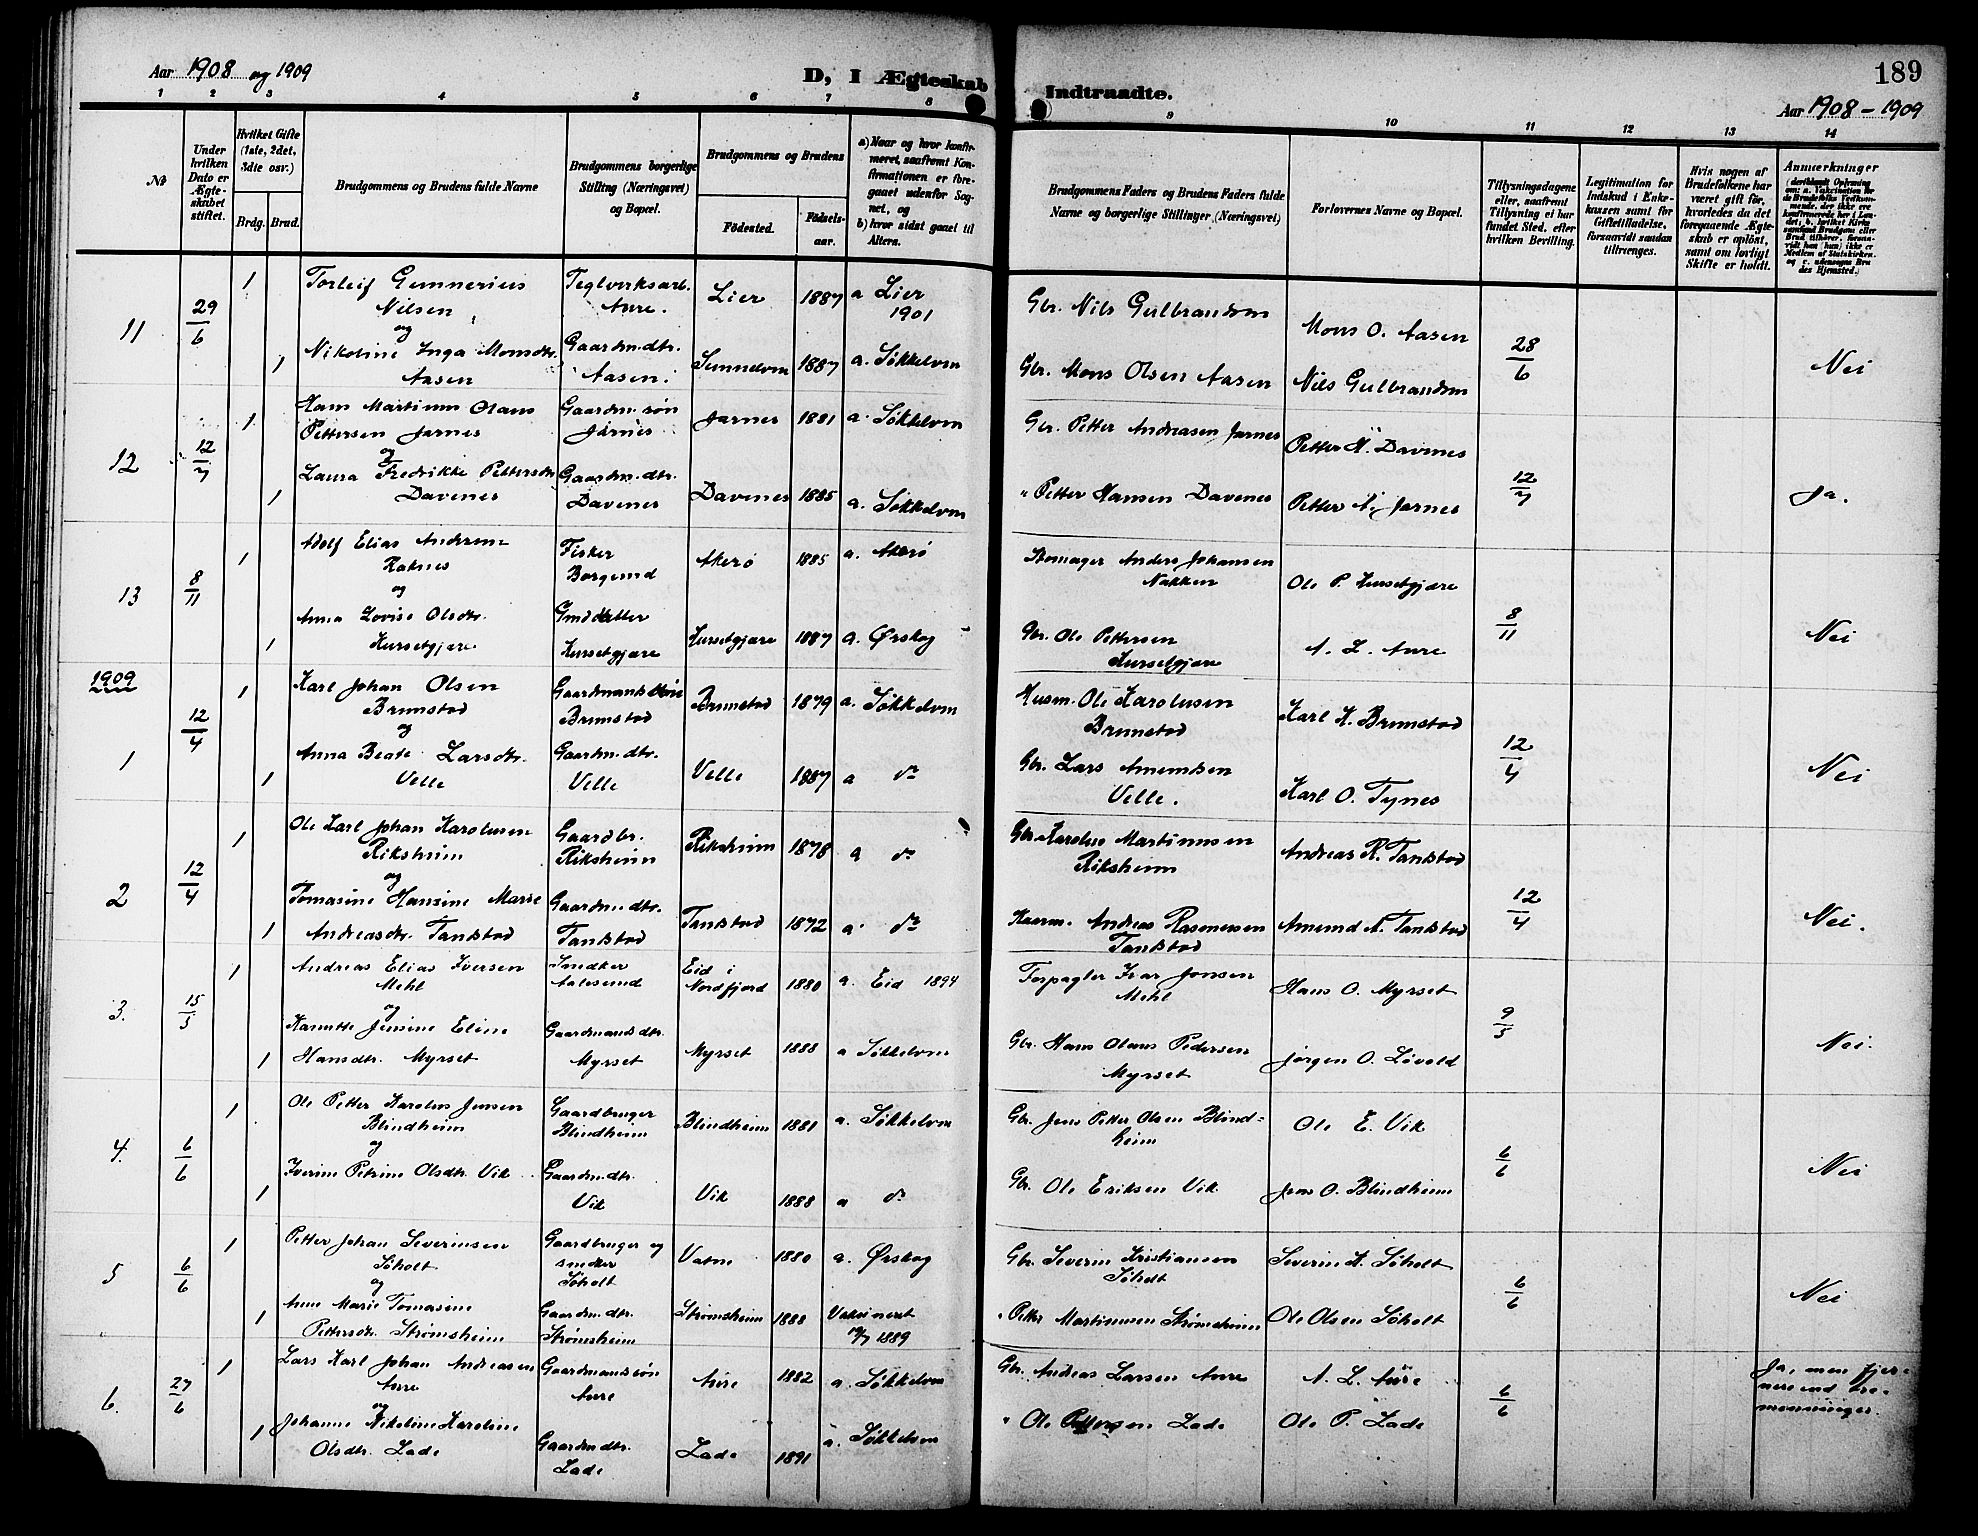 Aar 1908 og 1909
D, I Ægteskab
Indtraadte.
189
Aar 1908 - 1909
1 2 3 4 5 6 7 8 9 10 11 12 13 14
№
Under hvilken Dato er Ægteskabet stiftet.
Hvilket Gifte (1ste, 2det, 3dte osv.)
Brdg. Brud.
Brudgommens og Brudens fulde Navne
Brudgommens borgerlige Stilling (Næringsvei) og Bopæl.
Brudgommens og Brudens
Fødested.
Fødselsaar.
a) Naar og hvor konfirmeret, saafremt Konfirmationen er foregaaet udenfor Sognet, og
b) hvor sidst gaaet til Alters.
Brudgommens Faders og Brudens Faders fulde Navne og borgerlige Stillinger (Næringsvei)
Forlovernes Navne og Bopæl.
Tillysningsdagene eller, saafremt Tillysning ei har fundet Sted, efter hvilken Bevilling.
Legitimation for Indskud i Enkekassen samt for Giftetilladelse, forsaavidt saadan tiltrænges.
Hvis nogen af Brudefolkene har været gift før, hvorledes da det foregaaende Ægteskab er opløst, samt om lovligt Skifte er holdt.
Anmærkninger
11 29/6 1 Torleif Gunnerius Nilsen Teglverksarb. Aure. Lier 1887 a Lier 1901 Gbr. Nils Gulbrandsen Mons O. Aasen 28/6 Nei
og
1 Nikoline Inga Monsdtr. Aasen Gaardm.dtr. Aasen. Sunnelven 1887 a. Søkkelven Gbr. Mons Olsen Aasen Nils Gulbrandsen
12 12/7 1 Hans Martinus Olaus Pettersen Jarnes Gaardm.søn Jarnes Jarnes 1881 a Søkkelven Gbr. Petter Andreasen Jarnes Petter H. Davenes 12/7 Ja.
og
1 Laura Fredrikke Pettersdtr. Davenes Gaardm.dtr. Davenes Davenes 1885 a. Søkkelven " Petter Hansen Davenes Petter A. Jarnes
13 8/11 1 Adolf Elias Andersen Raknes Fisker Borgund Akerø 1885 a. Akerø Anders Johansen Nakken Ole P. Hursetgjære 8/11 Nei
og
1 Anna Lovise Olsdtr. Hursetgjære Hursetgjære Hursetgjære 1887 a. Ørskog Gbr. Ole Pettersen Hursetgjære A. L. Aure
1909
1 12/4 1 Karl Johan Olsen Brunstad Gaardmandssøn Brunstad Brunstad 1879 a. Søkkelven Husm. Ole Karolusen Brunstad Karl K. Brunstad 12/4 Nei
og
1 Anna Beate Larsdtr. Velle Gaardm.dtr. Velle Velle 1887 a do Gbr. Lars Amundsen Velle. Karl O. Tynes
2 12/4 1 Ole Karl Johan Karolusen Riksheim Gaardbr. Riksheim Riksheim 1878 a do Gbr. Karolus Martinusen Riksheim Andreas R. Tandstad 12/4 Nei.
og
1 Tomasine Hansine Marie Andreasdtr. Tandstad Gaardm.dtr. Tandstad Tandstad 1872 a. do Andreas Rasmussen Tandstad Amund A. Tandstad
3. 15/5 1 Andreas Elias Iversen Mehl Snedker Aalesund Eid i Nordfjord 1880 a. Eid 1894 Forpagter Ivar Jonsen Mehl Hans O. Myrset 9/5 Nei.
og
1 Kanutte Jensine Eline Hansdtr. Myrset Gaardmandsdtr. Myrset Myrset 1888 a Søkkelven Gbr. Hans Olaus Pedersen Myrset Jørgen O. Løvold
4. 6/6 1 Ole Petter Karolus Jensen Blindheim Gaardbruger Blindheim Blindheim 1881 a. Søkkelven Gbr. Jens Petter Olsen Blindheim Ole E. Vik 6/6 Nei
og
1 Iverine Petrine Olsdtr. Vik Gaardm.dtr. Vik Vik 1888 a do Gbr. Ole Eriksen Vik Jens O. Blindheim
5 6/6 1 Petter Johan Severinsen Søholt Gaardbruger og snedker Søholt Vatne 1880 a. Ørskog Gbr. Severin Kristiansen Søholt Severin K. Søholt 6/6 Nei
og
1 Anne Marie Tomasine Pettersdtr. Strømsheim Gaardm.dtr. Strømsheim Strømsheim 1888 Vaksineret 1889 " Petter Martinusen Strømsheim Ole Olsen Søholt
6. 27/6 1 Lars Karl Johan Andreasen Aure Gaardmandssøn Aure Aure 1882 a. Søkkelven Gbr. Andreas Larsen Aure A. L. Aure 6/6 Ja, men fjernere end tremenninger.
og
1 Johanne Nikoline Karoline Olsdtr. Lade Gaardm.dtr. Lade Lade 1891 a. Søkkelven " Ole Pettersen Lade Ole P. Lade